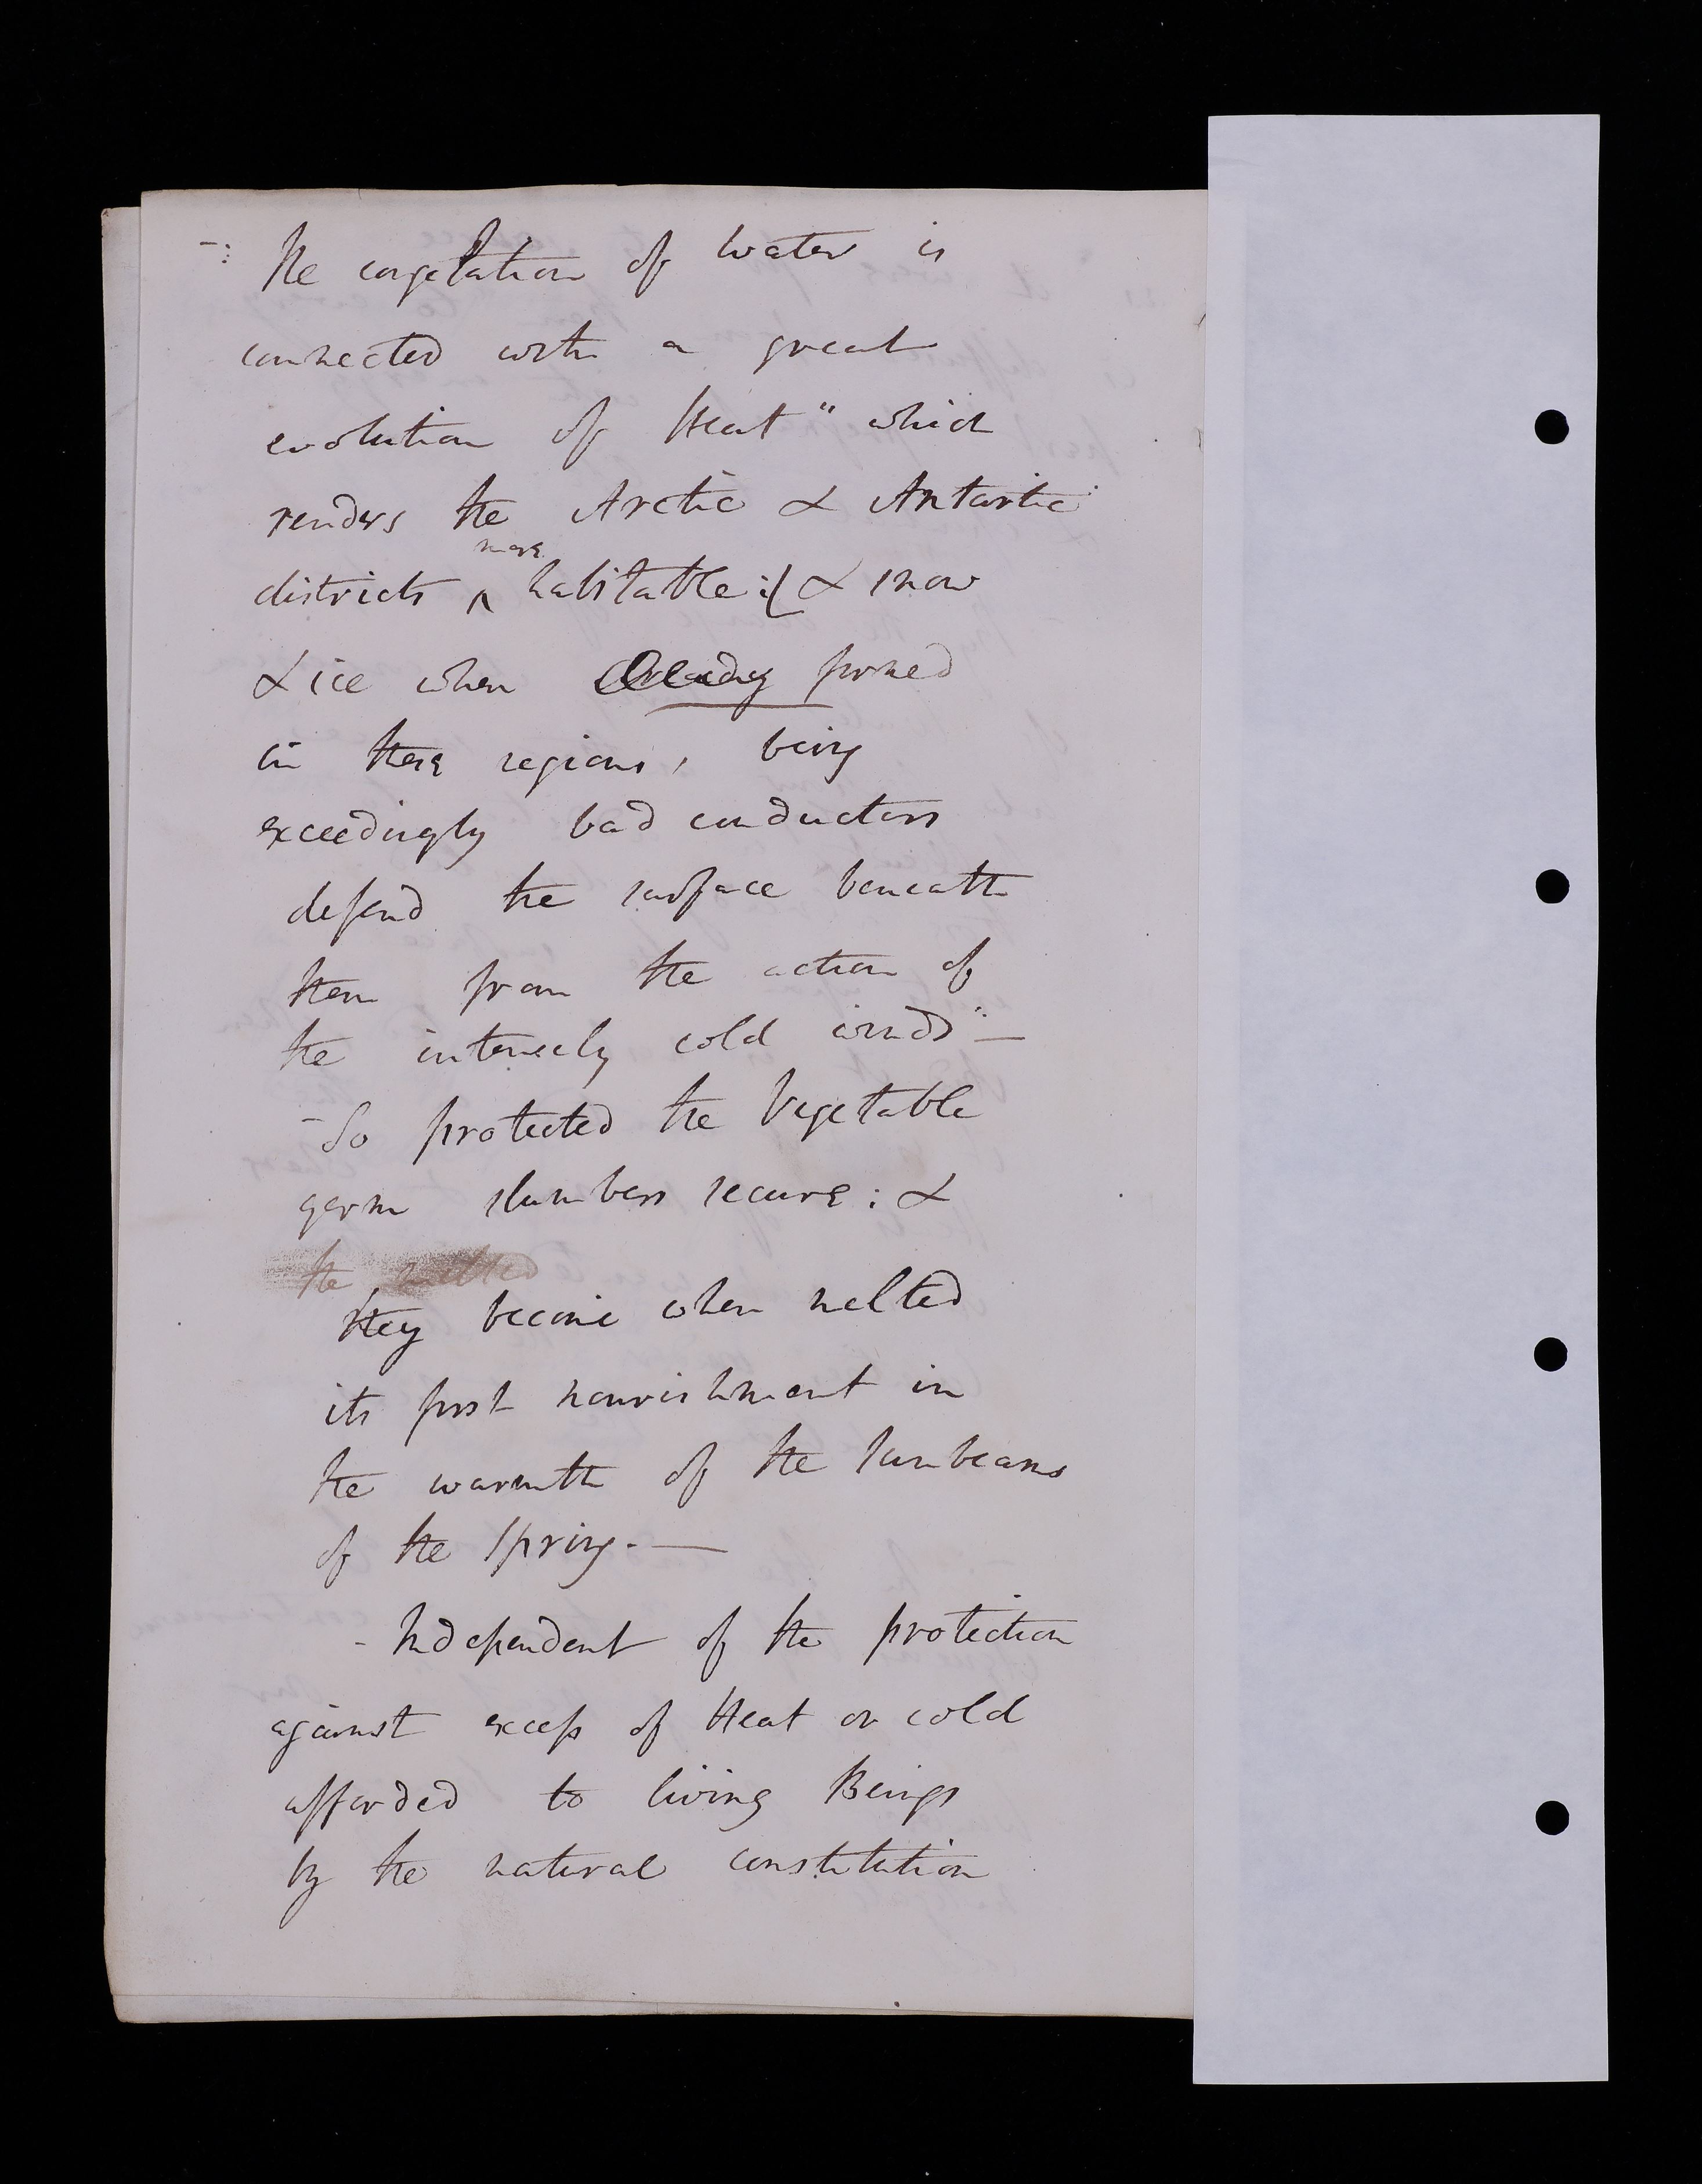 -: The congelation of water is
connected with a great
evolution of Heat" which
renders the Arctic & Antartic
more
districts ^ habitable :( & snow
& ice when already formed
in these regions, being
exceedingly bad conductors
defend the surface beneath
them from the action of
the intensely cold winds": —
- So protected the Vegetable
germ slumbers secure : &
the melted
they become when melted
its first nourishment in
the warmth of the sunbeams
of the Spring. —
- Independent of the protection
against excess of Heat or cold
afforded to living Beings
by the natural constitution